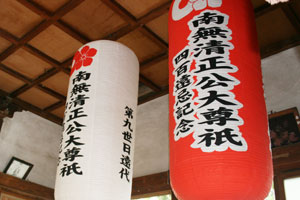 南無清正公大尊祇
四百遠忌記念
南無清正公大尊祇
第九世日達代